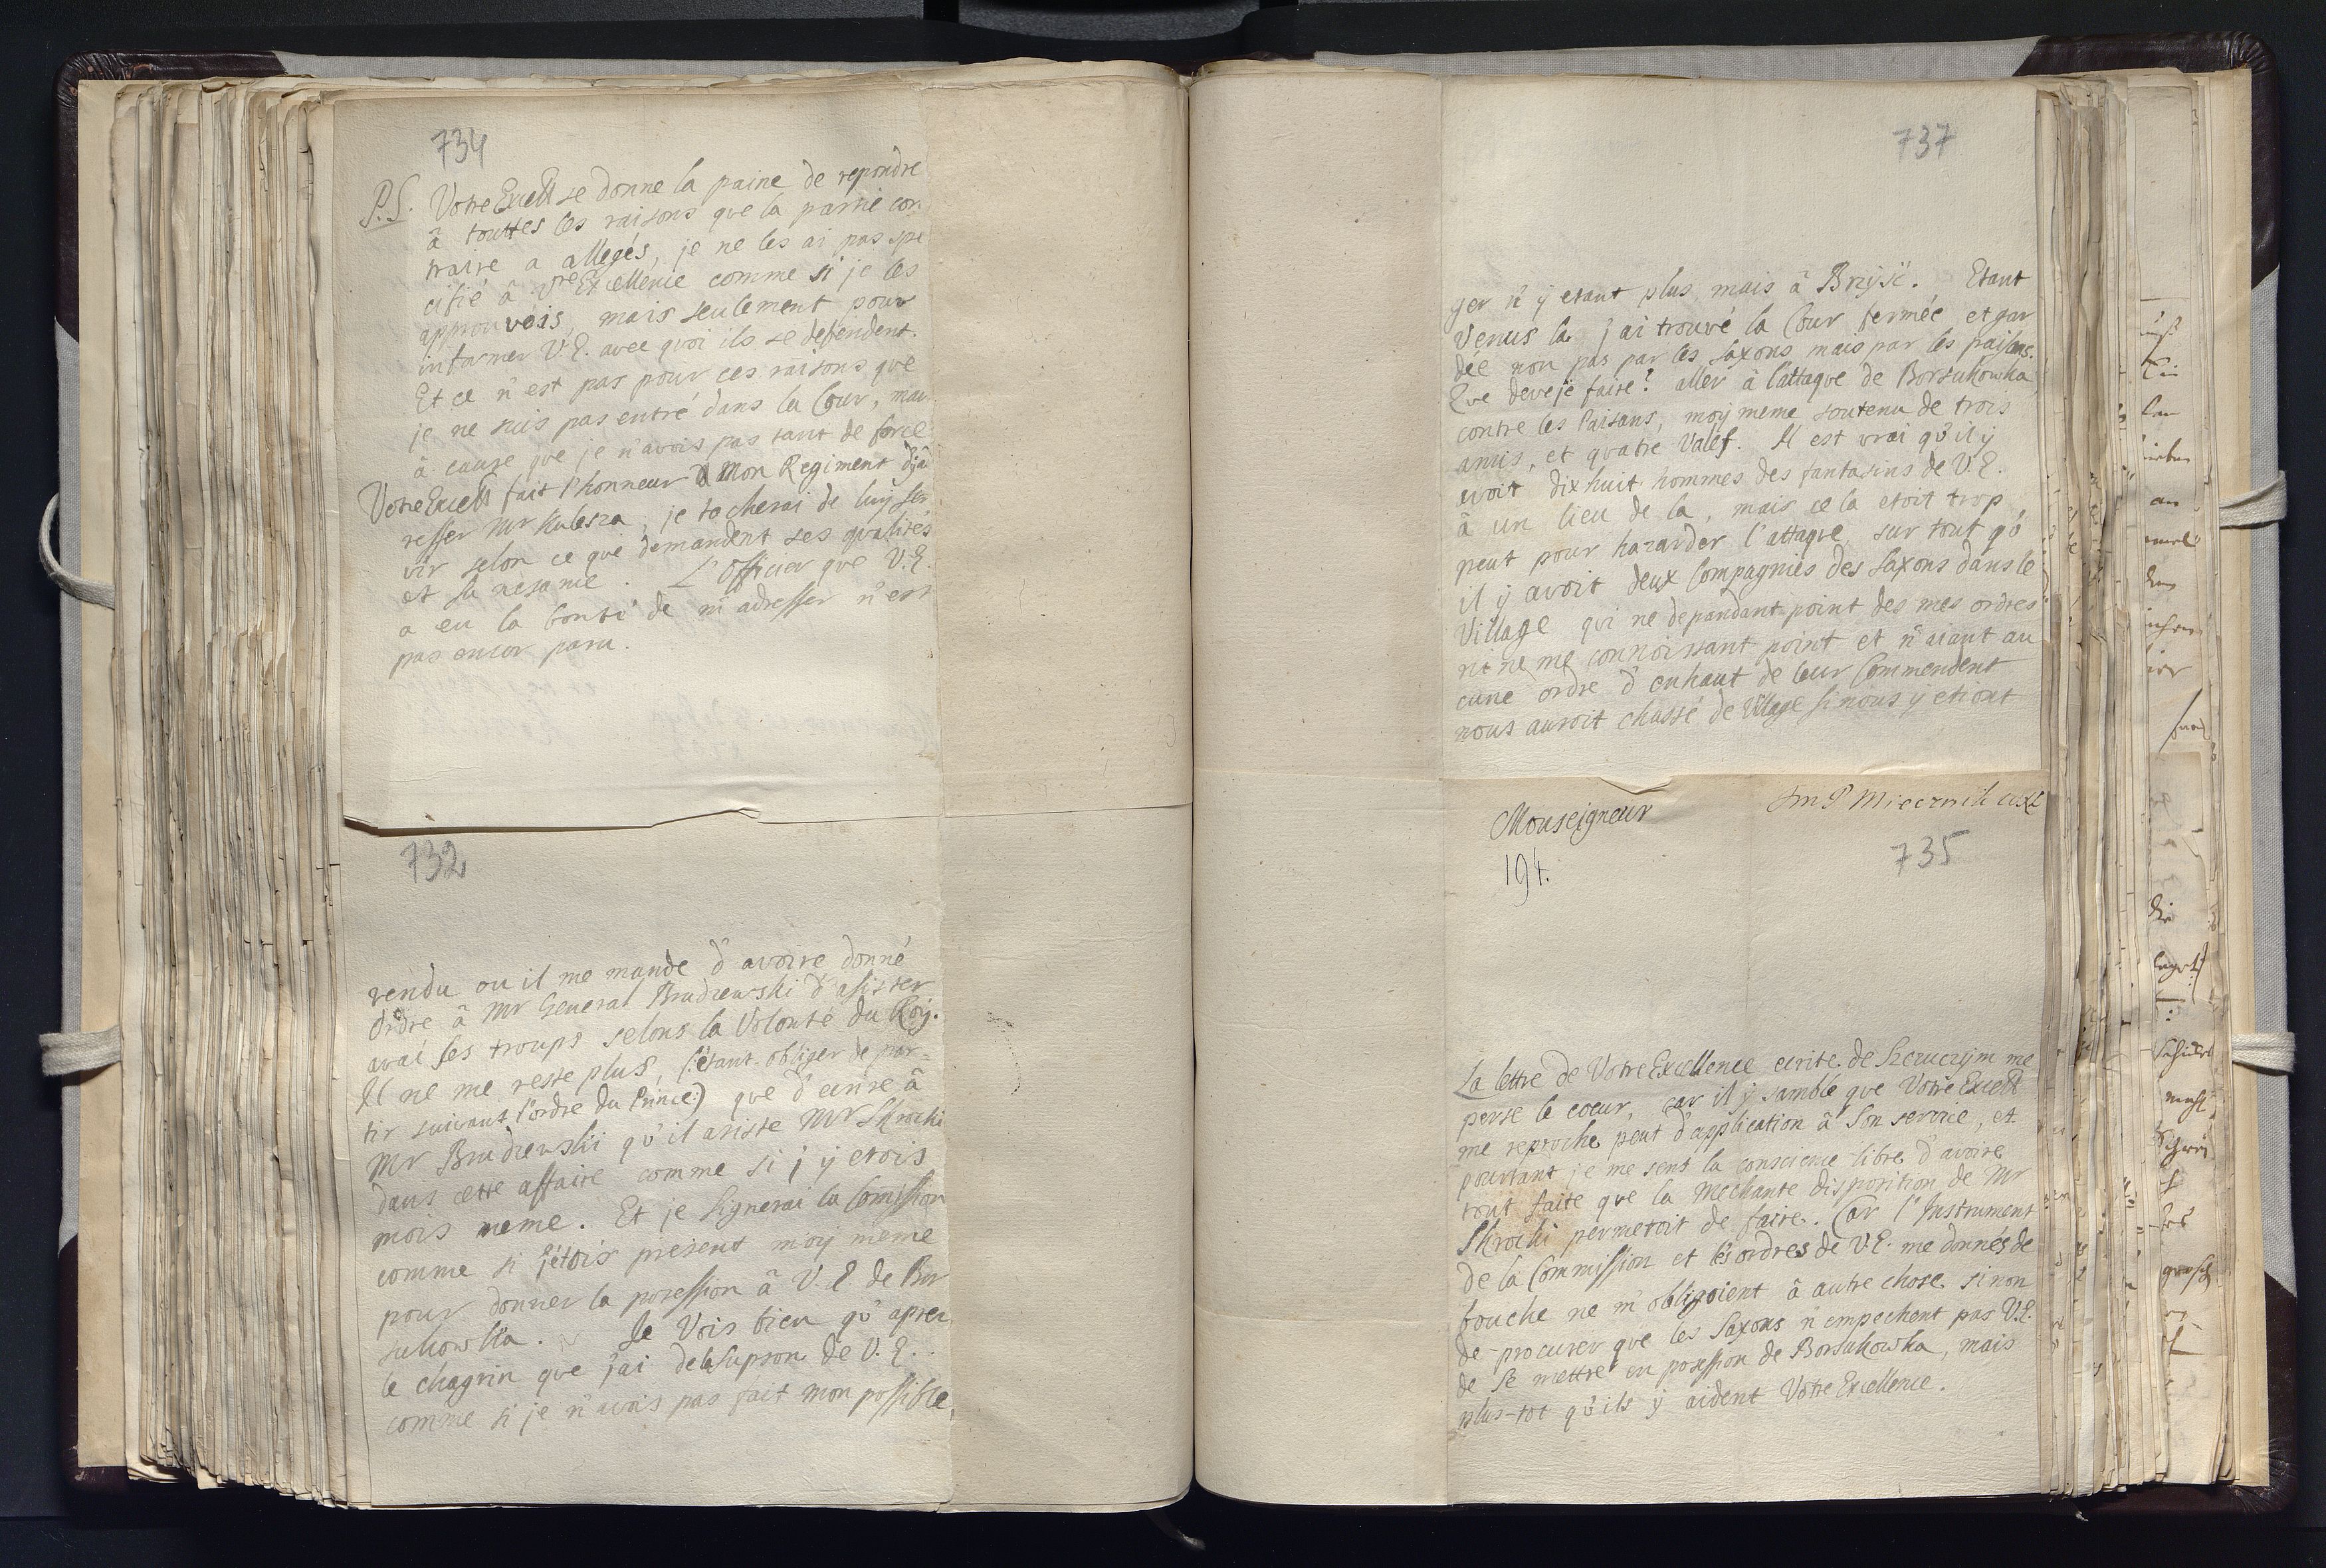 734
P.S. Votre Excell se donne la paine de repondre
â touttes les raisons que la partie con
traire a allegés, je ne les ai pas spe
cifié â Vtre Excellence comme si je les
approuvois, mais seulement pour
informer V.E. avec quoi ils se defendent.
Et ce n'est pas pour ces raisons que
je ne suis pas entré dans la Cour, mais
â cause que je n'avois pas tant de force
Votre Excell fait l'honneur â Mon Regiment d'ja
resser Mr Kulesza, je tacherai de luÿ ser
vir selon ce que demandent ses qualités
et sa nesance. L'Officier que V.E.
a eu la bonté de m'adresser n'est
pas encor paru.
732
rendu ou il me mande d'avoire donné
ordre â Mr General Brudzewski d'asister
avai ses troups selons la Volonté du Roij.
Il ne me reste plus, (:étant obliger de par-
tir suivant l'ordre du Prince:) que d'ecrire â
Mr Brudzewski qu'il asiste Mr Skrocki
dans cette affaire comme si j'ÿ etois
mois meme. Et je Signerai la Comission
comme si j'étois present moij meme
pour donner la possession â V.E. de Bor
sukowska. Je Vois bien qu'apres
le chagrin que j'ai de la supson de V.E.
comme si je n'avois pas fait mon possible,
737
ger n'ÿ etant plus, mais â Brzÿsć. Etant
Venus la, j'ai trouvé la Cour fermée et gar
dée non pas par les Saxons mais par les paisans.
Que deveje faire? aller â l'attaque de Borsukowka
contre les Paisans, moij meme soutenu de trois
amis, et quatre Valet. Il est vrai qu'il ÿ
avoit dixhuit hommes des fantasins de V.E.
â un lieu de la, mais ce la etoit trop
peut pour hazarder l'attaque, sur tout qu'
il ÿ avoit deux Compagnies des Saxons dans le
Village qui ne depandant point des mes ordres
ni ne me connoissant point et n'aiant au
cune ordre d'enhaut de leur Commendent
nous auroit chassé de Village si nous ÿ etiont
Monseigneur
JmP Miecznik
194.
735
La lettre de Votre Excellence ecrite de Szczuczÿn me
perse le coeur, car il ÿ samble que Votre Excell
me reproche peut d'application â Son service, et
pourtant je me sens la conscience libre d'avoire
tout faite que la Mechante disposition de Mr
Skrocki permetoit de faire. Car l'Instrument
de la Commission et les ordres de V.E. me donnés de
bouche ne m'obligoient â autre chose, sinon
de procurer que les Saxons n'empechent pas V.E.
de se mettre en posession de Borsukowska, mais
plus-tot qu'ils ÿ aident Votre Excellence.